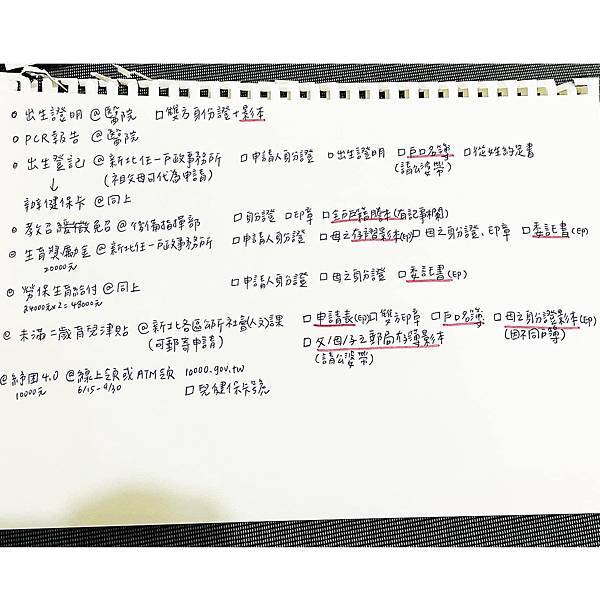 ○ 出生證明 @醫院 □雙方身份證+影本
○ PCR報告 @醫院
○ 出生登記 @新北任一戶政事務所 □申請人身分證 □出生證明 □戶口名簿 □從姓約定書
(祖父母可代為申請) (請公婆帶)
↓
健保卡 @同上
○ 教召緩徵免召 @後備指揮部 □身份證 □印章 □全戶戶籍謄本(有記事欄)
○ 生育獎勵金 @新北任一戶政事務所 □申請人身分證 □母之存摺影本(EP) □母之身分證、印章 □委託書(EP)
20000元
◎ 勞保生育給付 @同上 □申請人身分證 □母之身分證 □委託書(EP)
24000元x2=48000元
@ 未滿二歲育兒津貼 @新北各區公所社會人文課 □申請表(EP) □雙方印章 □戶口名簿 □母之身分證影本(EP)
(可郵寄申請) □父/母/子之郵局存簿影本 (因不同戶簿)
(請公婆帶)
@紓困4.0 @線上領或ATM領 10000.gov.tw
10000元 6/15-9/30 □兒健保卡號